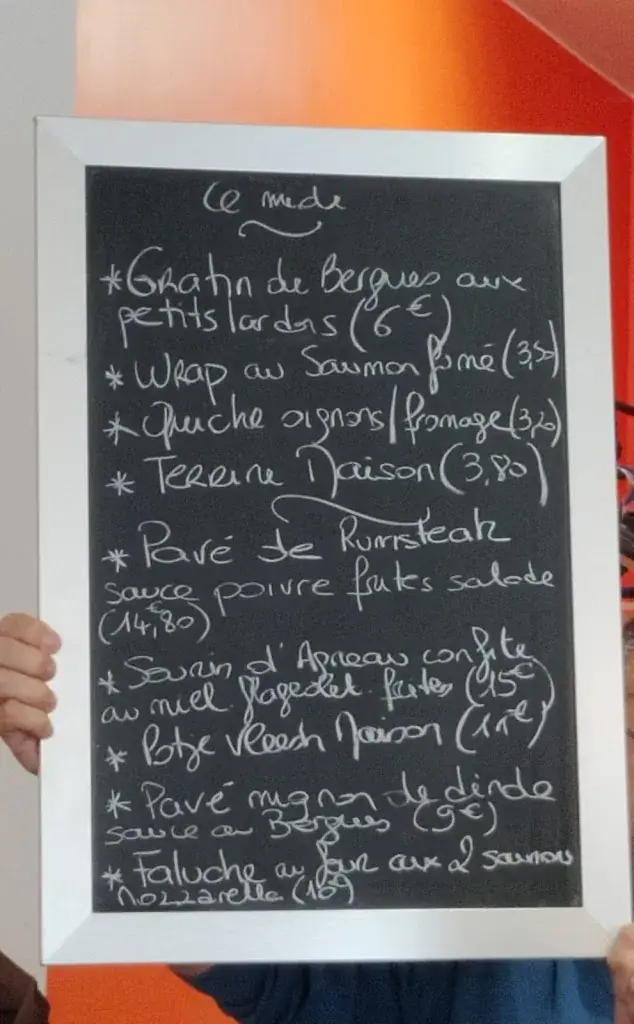 Ce midi
* Gratin de Bergues aux
petits lardons (6€)
* Wrap au Saumon fumé (3,50)
* Quiche oignons/fromage (3,20)
* Terrine Maison (3,80)
* Pavé de Rumsteak
sauce poivre frites salade
(14,80€)
* Souris d'Agneau confite
au miel flageolet frites (15€)
* Potje vleesh Maison (11€)
* Pavé mignon de dinde
sauce au Bergues (9€)
* Faluche au four aux 2 saumons
mozzarella (10€)